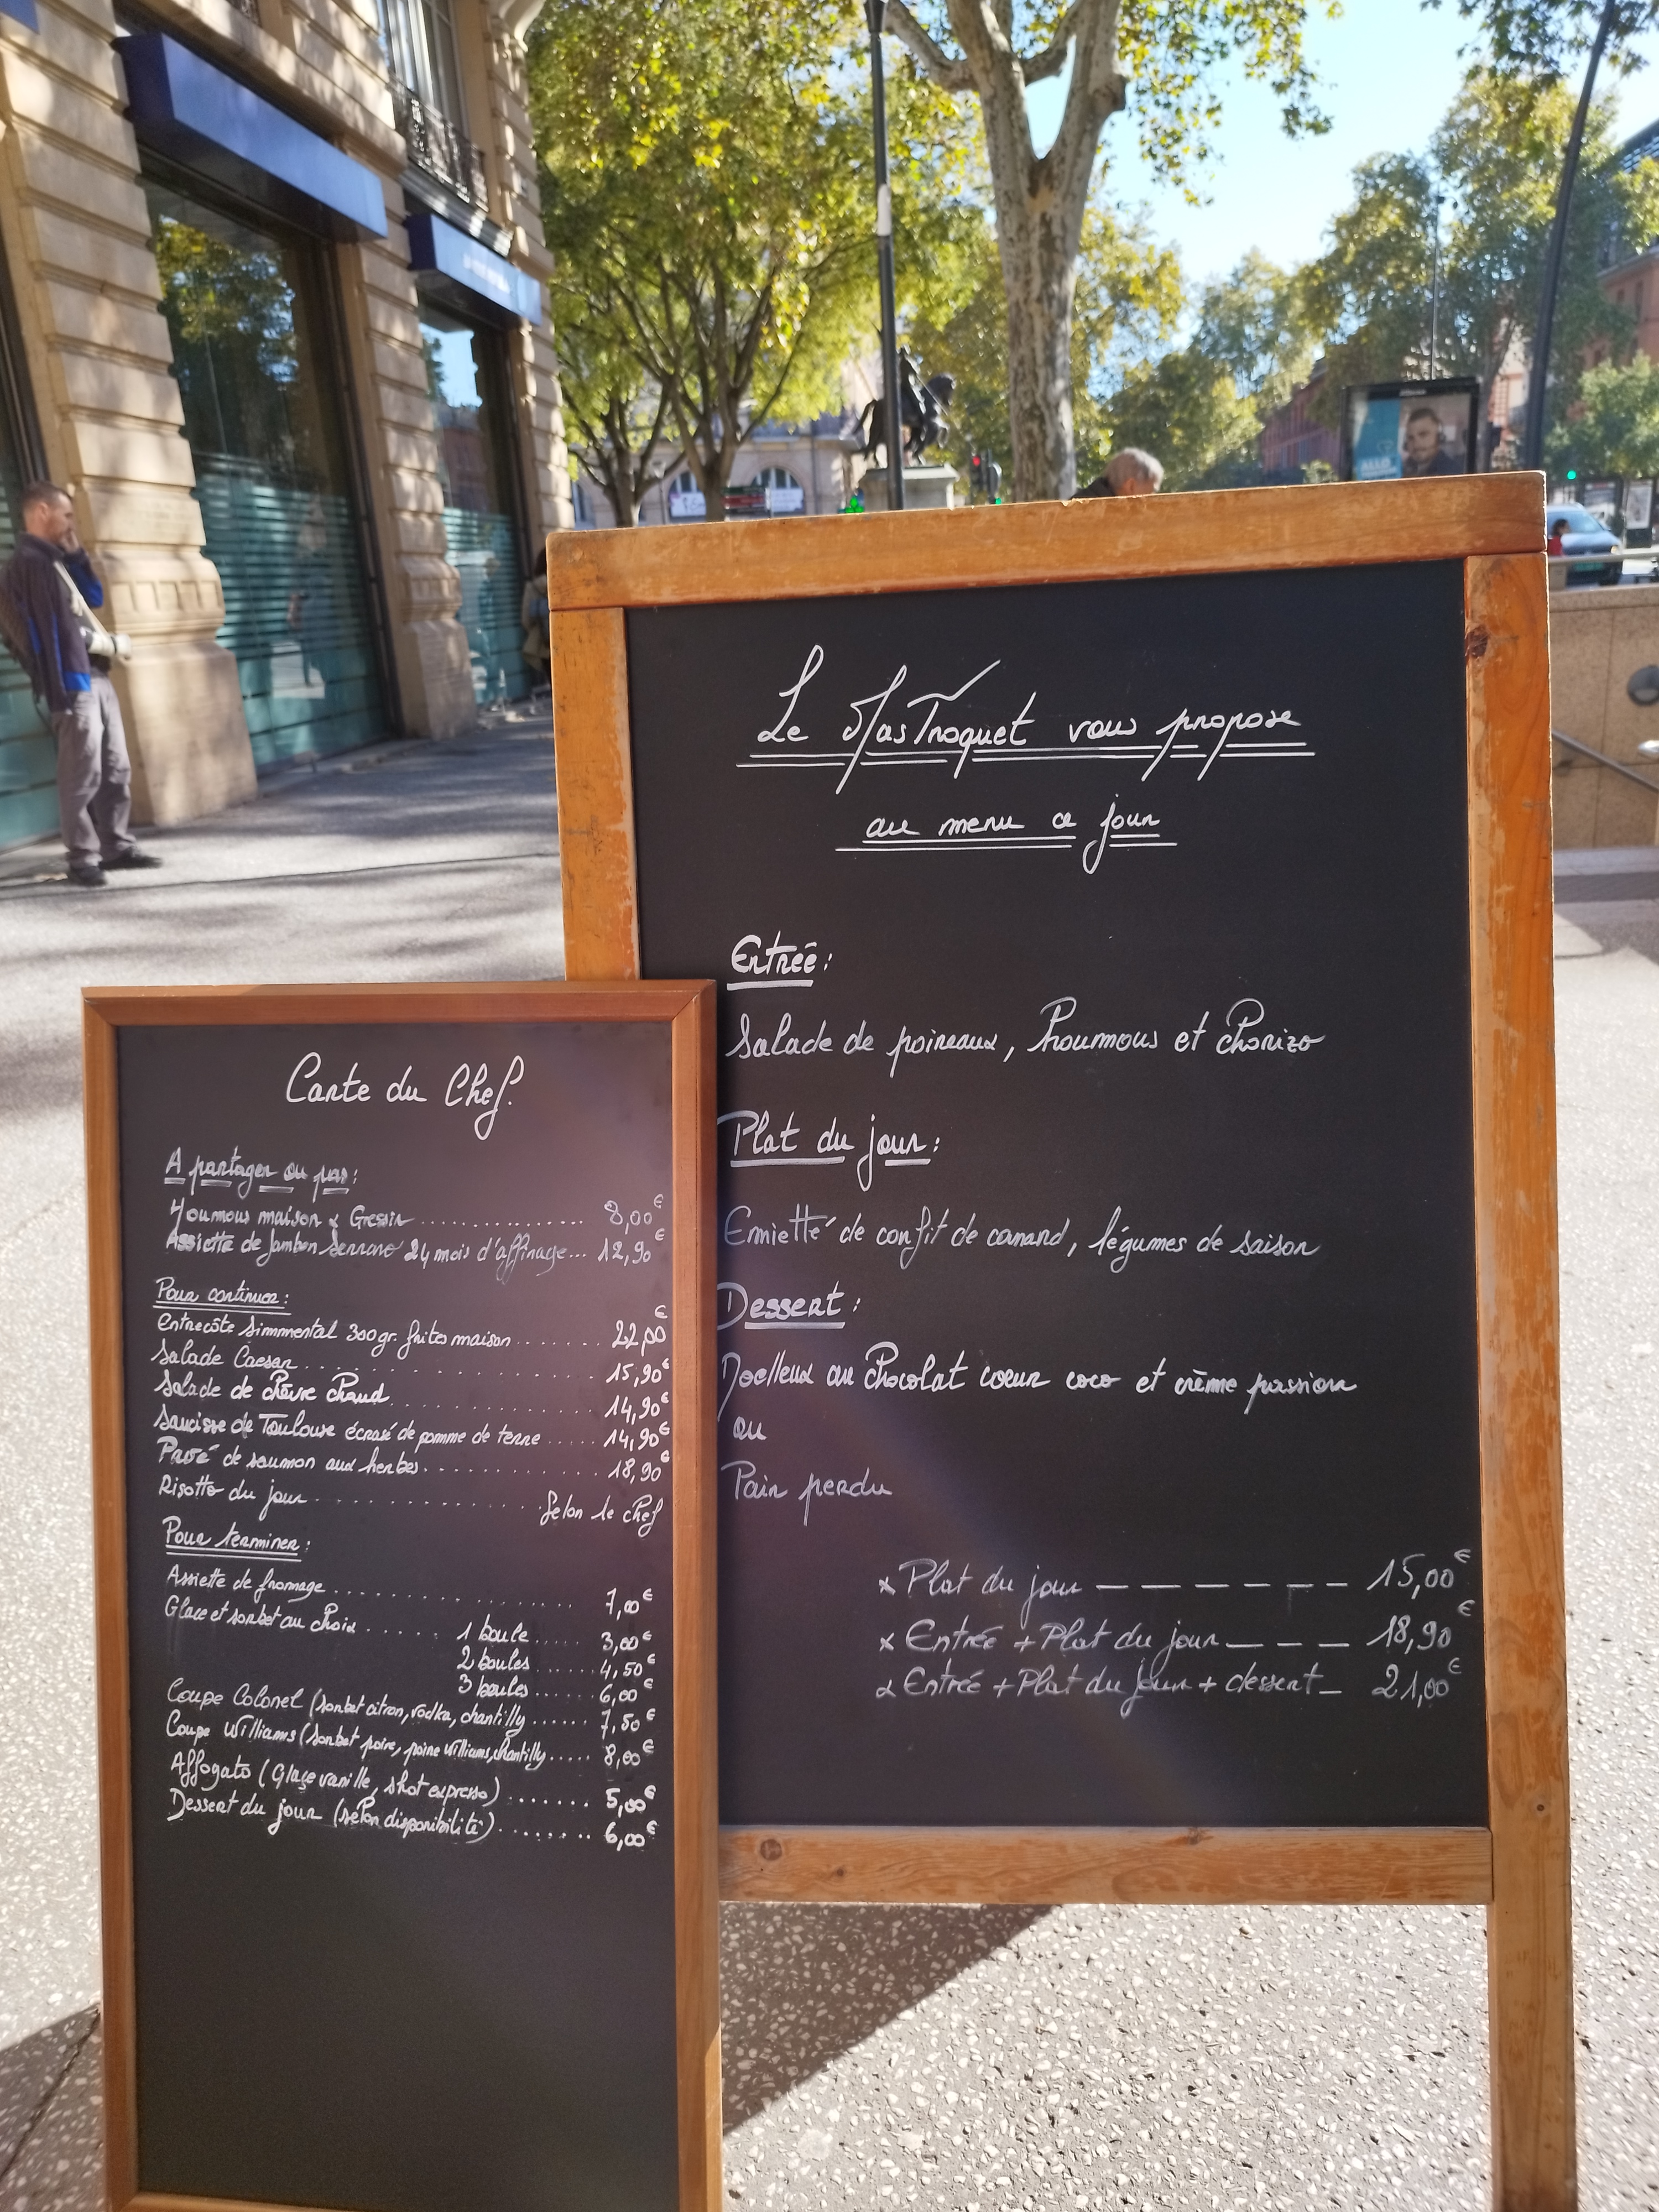 Le MasTroquet vous propose
au menu ce jour
Entrée :
Salade de poireaux, houmous et chorizo
Plat du jour :
Emietté de confit de canard, légumes de saison
Dessert :
Moelleux au chocolat coeur coco et crème passion
ou
Pain perdu
x Plat du jour — — — — — — 15,00€
x Entrée + Plat du jour — — — 18,90€
x Entrée + Plat du jour + dessert — 21,00€
Carte du Chef.
A partager ou pas :
Houmous maison & Gressin .............. 8,00€
Assiette de Jambon Serrano 24 mois d'affinage... 12,90€
Pour continuer :
Entrecôte Simmental 300gr. frites maison ....... 22,00€
Salade Caesar .............. 15,90€
Salade de chèvre chaud .............. 14,90€
Saucisse de Toulouse écrasé de pomme de terre ..... 14,90€
Pavé de saumon aux herbes .............. 18,90€
Risotto du jour .............. Selon le chef
Pour terminer :
Assiette de fromage .............. 7,00€
Glace et sorbet au choix ..... 1 boule ..... 3,00€
2 boules ...... 4,50€
3 boules ...... 6,00€
Coupe Colonel (sorbet citron, vodka, chantilly ...... 7,50€
Coupe Williams (sorbet poire, poire williams, chantilly ..... 8,00€
Affogato (Glace vanille, shot expresso) ....... 5,00€
Dessert du jour (selon disponibilité) ........ 6,00€
ALLO